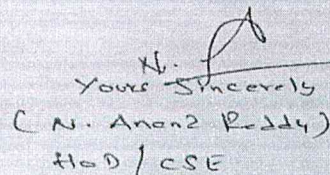 Yours Sincerely
(N. Anand Reddy)
HOD / CSE